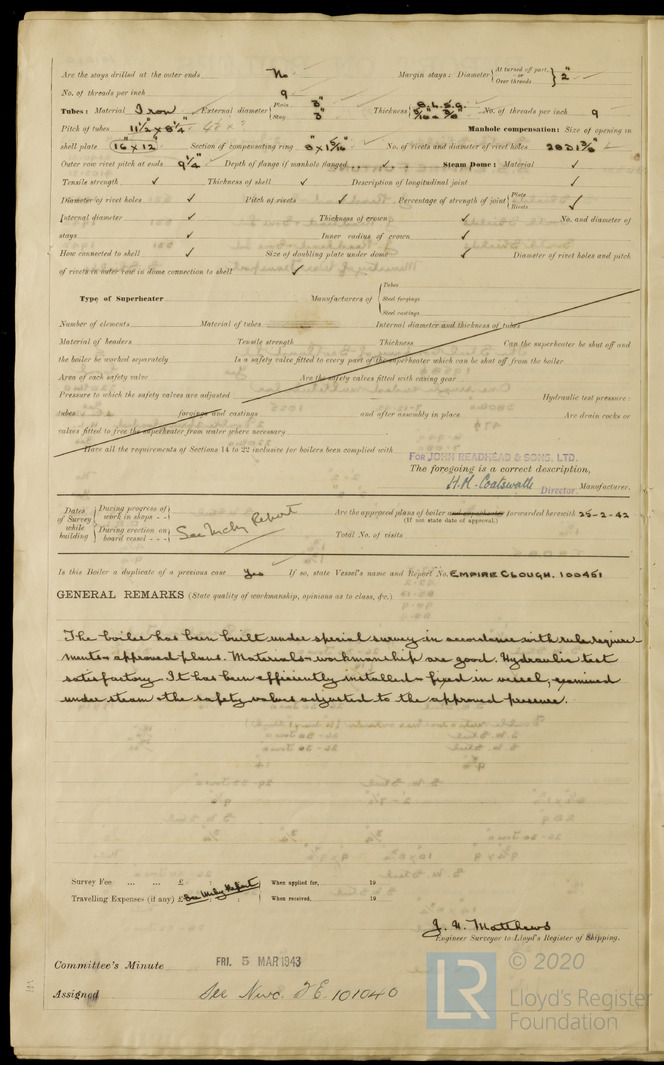 Are the stays drilled at the outer ends No Margin stays: Diameter { At turned off part, or Over threads } 2"
No. of threads per inch 9
Tubes: Material Iron External diameter { Plain 3" Stay 3" Thickness { 8. L.S.G. 5/16 & 3/8" No. of threads per inch 9
Pitch of tubes 11½" x 8¼" Manhole compensation: Size of opening in
shell plate 16" x 12" Section of compensating ring 8" x 1 5/16" No. of rivets and diameter of rivet holes 28 @ 1 3/8"
Outer row rivet pitch at ends 9¼" Depth of flange if manhole flanged ✓ Steam Dome: Material ✓
Tensile strength ✓ Thickness of shell ✓ Description of longitudinal joint ✓
Diameter of rivet holes ✓ Pitch of rivets ✓ Percentage of strength of joint { Plate Rivets ✓
Internal diameter ✓ Thickness of crown ✓ No. and diameter of
stays ✓ Inner radius of crown ✓
How connected to shell ✓ Size of doubling plate under dome ✓ Diameter of rivet holes and pitch
of rivets in outer row in dome connection to shell ✓
Type of Superheater Manufacturers of { Tubes Steel forgings Steel castings
Number of elements Material of tubes Internal diameter and thickness of tubes
Material of headers Tensile strength Thickness Can the superheater be shut off and
the boiler be worked separately Is a safety valve fitted to every part of the superheater which can be shut off from the boiler
Area of each safety valve Are the safety valves fitted with easing gear
Pressure to which the safety valves are adjusted Hydraulic test pressure:
tubes forgings and castings and after assembly in place Are drain cocks or
valves fitted to free the superheater from water where necessary
Have all the requirements of Sections 14 to 22 inclusive for boilers been complied with
FOR JOHN READHEAD & SONS, LTD.
The foregoing is a correct description,
H. M. Coatswath Director. Manufacturer.
Dates of Survey while building { During progress of work in shops - - During erection on board vessel - - - } See Mchy Report
Are the approved plans of boiler and superheater forwarded herewith 25-2-42
(If not state date of approval.)
Total No. of visits
Is this Boiler a duplicate of a previous case Yes If so, state Vessel's name and Report No. EMPIRE CLOUGH. 100461
GENERAL REMARKS (State quality of workmanship, opinions as to class, &c.)
The boiler has been built under special survey in accordance with rule require-
ments & approved plans. Materials & workmanship are good. Hydraulic test
satisfactory. It has been efficiently installed & fixed in vessel, examined
under steam & the safety valves adjusted to the approved pressure.
Survey Fee ... ... £ : : When applied for, 19
Travelling Expenses (if any) £ See Mchy Report When received, 19
J. H. Matthews
Engineer Surveyor to Lloyd's Register of Shipping.
Committee's Minute FRI. 5 MAR 1943
Assigned See Nwc. F.E. 101040
LR © 2020
Lloyd's Register
Foundation